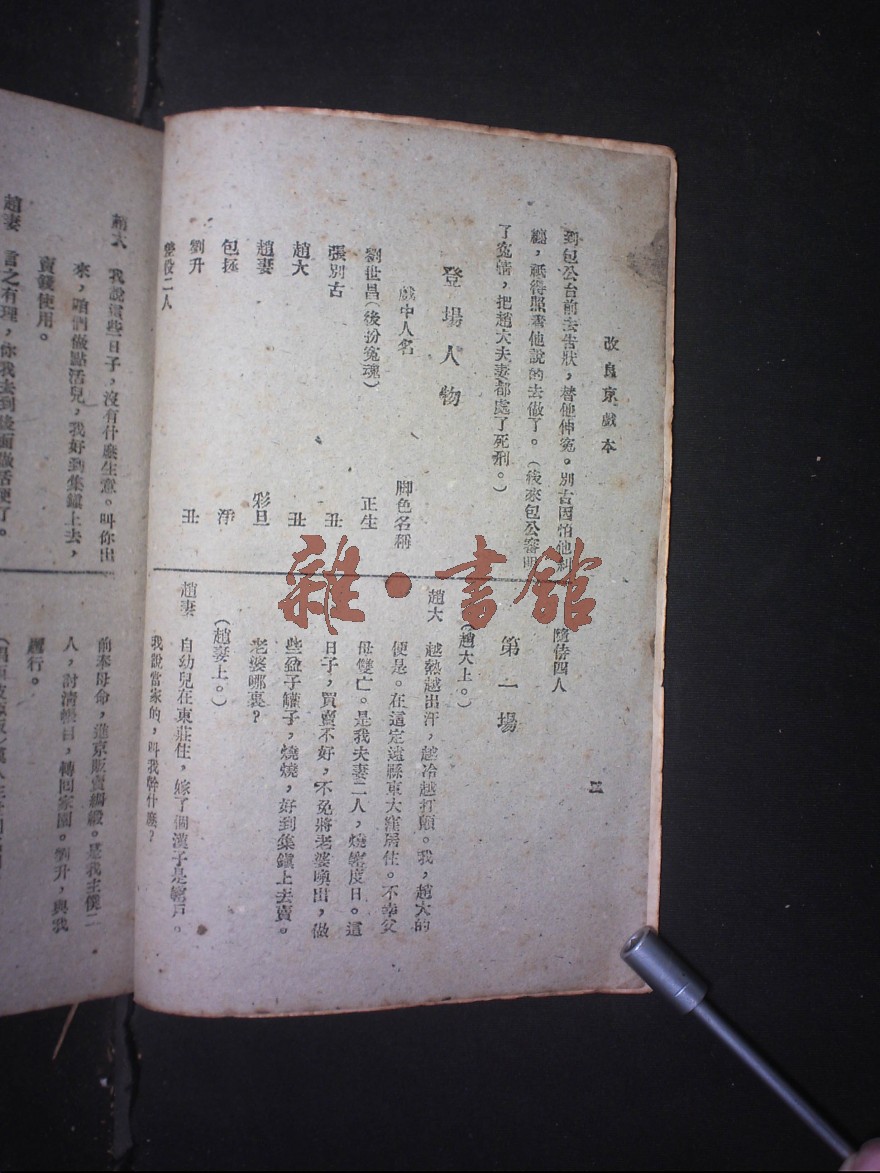 改良京戲本
四
到包公台前去告狀，替他伸冤。別古因怕他糾
纏，祇得照着他說的去做了。（後來包公審明
了冤情，把趙大夫妻都處了死刑。）
登場人物
戲中人名 脚色名稱
劉世昌（後扮冤魂） 正生
張別古 丑
趙大 丑
趙妻 彩旦
包拯 淨
劉升 丑
衙役二人
隨侍四人
第一場
（趙大上。）
趙大 越熱越出汗，越冷越打顫。我，趙大的
便是。在這定遠縣東大窪居住。不幸父
母雙亡。是我夫妻二人，燒窰度日。這
日子，買賣不好，不免將老婆喚出，做
些盆子罐子，燒燒，好到集鎮上去賣。
老婆哪裏？
（趙妻上。）
趙妻 自幼兒在東莊住，嫁了個漢子是窰戶。
我說當家的，叫我幹什麼？
趙大 我說這些日子，沒有什麼生意。叫你出
來，咱們做點活兒，我好到集鎮上去，
賣錢使用。
趙妻 言之有理，你我去到後面做活便了。
前奉母命，進京販賣綢緞。是我主僕二
人，討清帳目，轉回家園。劉升，與我
趲行。
雜·書館